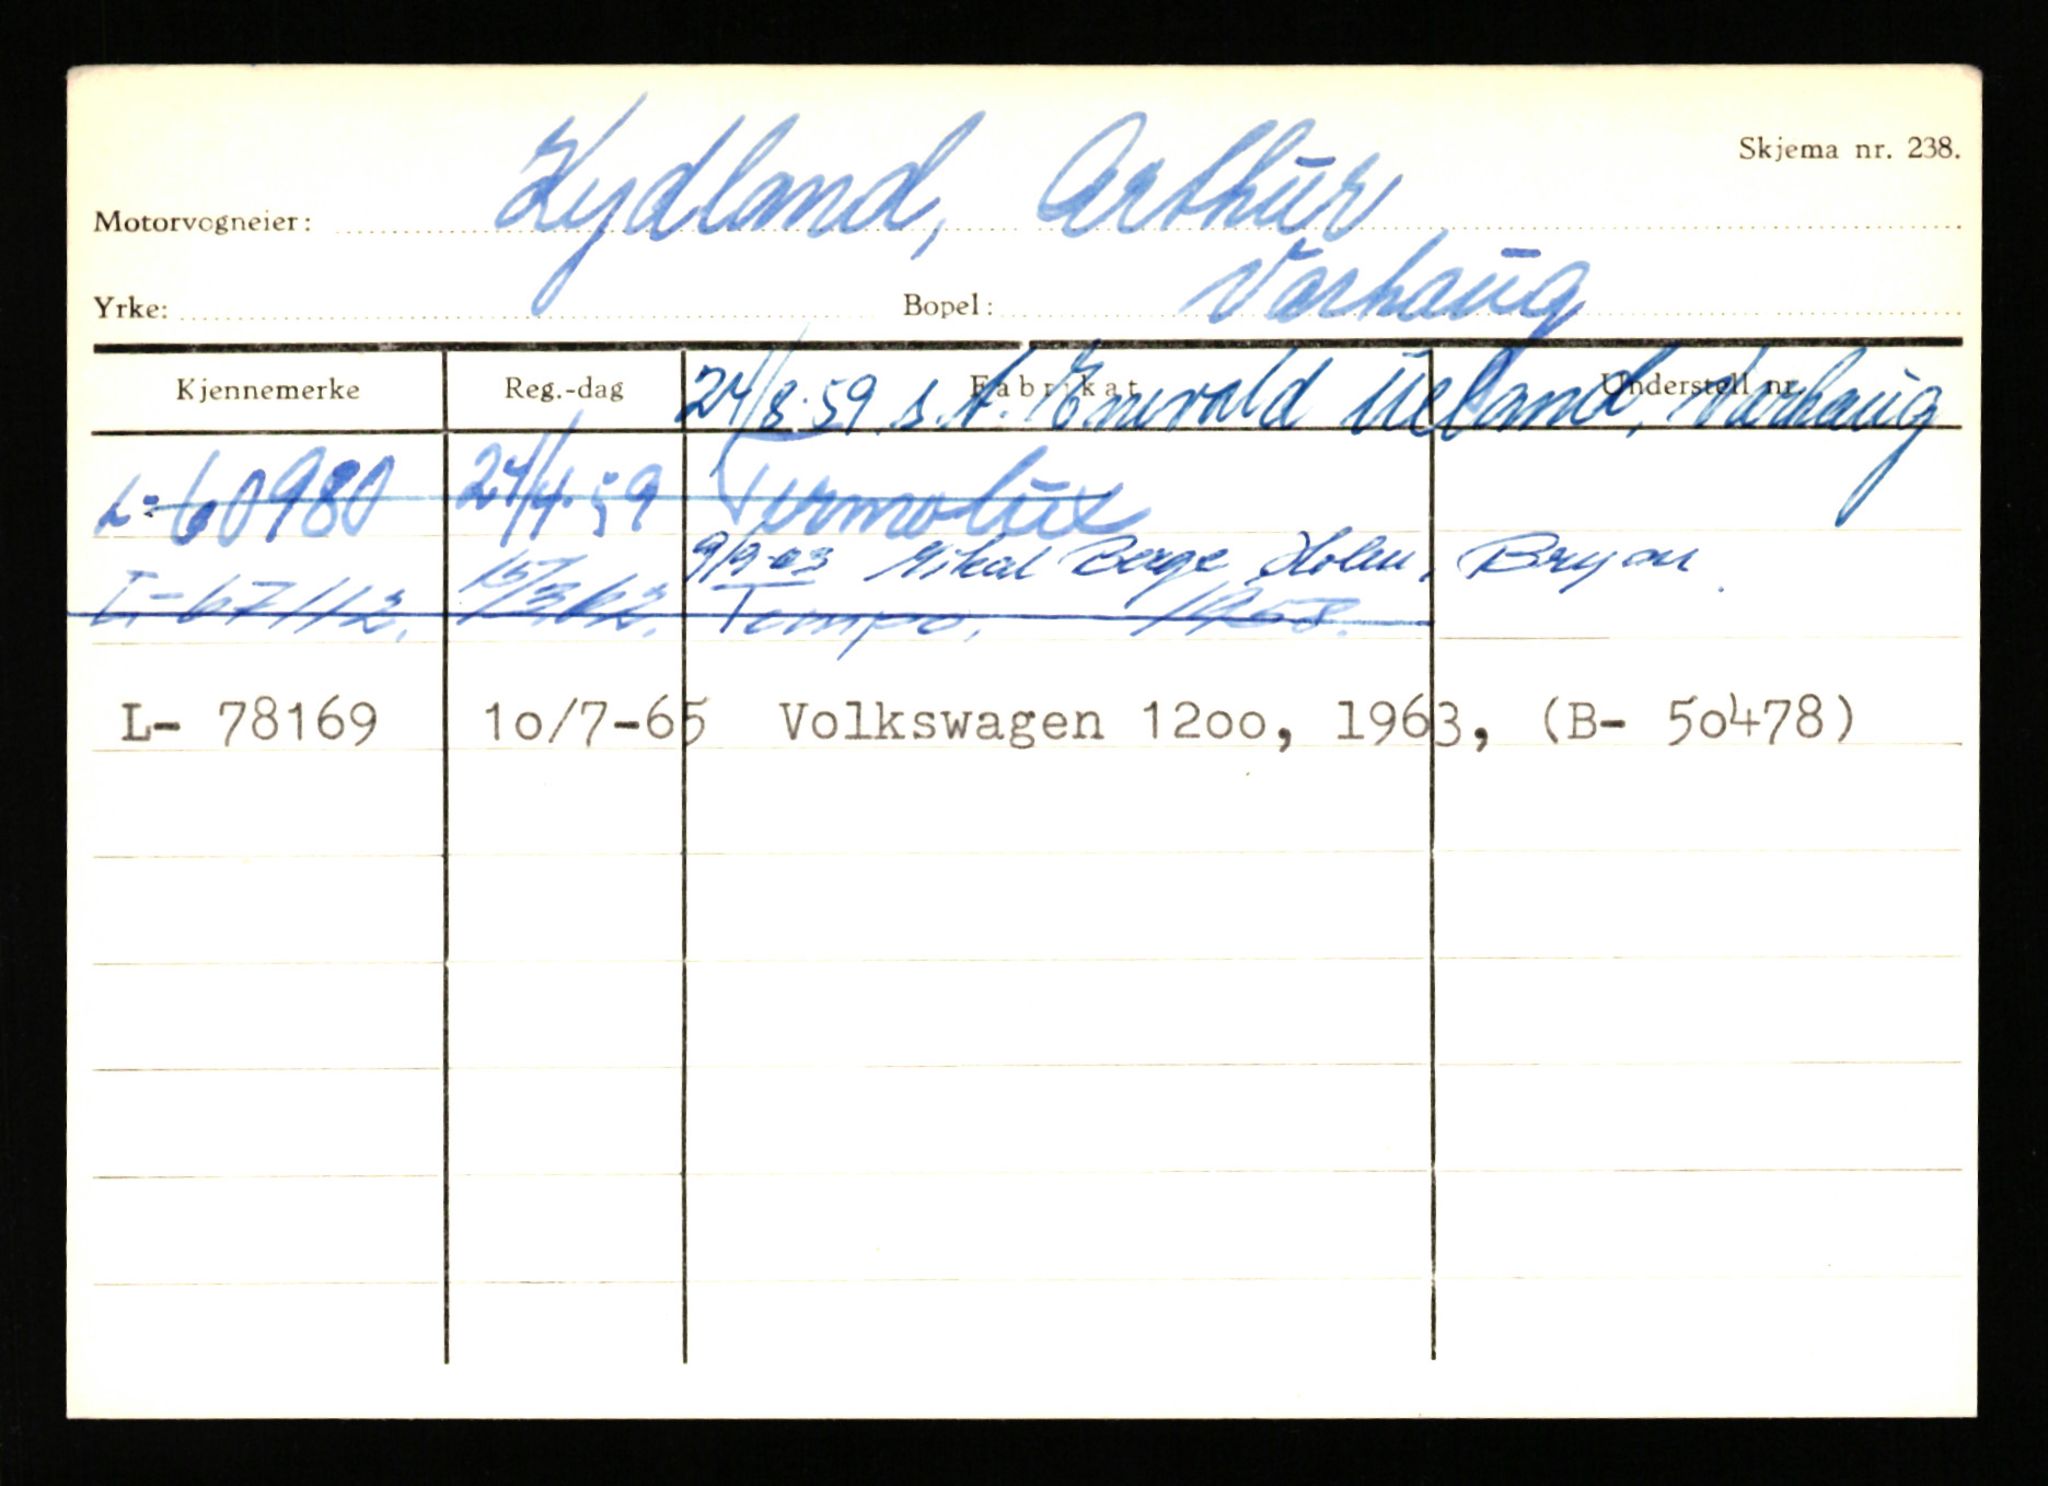 Skjema nr. 238.
Motorvogneier: Lydland, Arthur
Yrke: Bopel: Varhaug
Kjennemerke Reg.-dag Fabrikat Understell nr.
24/8.59 s.A. Enevald Ueland, Varhaug
L-60980 24/4.59 Termolux
9/9-63 Mikal Berge Holm, Bryne
L-67112. 15/3 62. Tempo, 1958.
L- 78169 1o/7-65 Volkswagen 12oo, 1963, (B- 5o478)